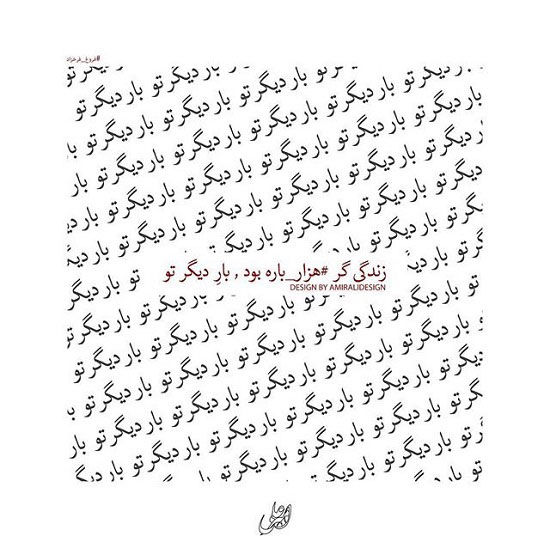 #فروغ_فرخزاد
بار دیگر تو بار دیگر تو بار دیگر تو بار دیگر تو
بار دیگر تو بار دیگر تو بار دیگر تو بار دیگر تو بار دیگر تو
بار دیگر تو بار دیگر تو بار دیگر تو بار دیگر تو بار دیگر تو
بار دیگر تو بار دیگر تو بار دیگر تو بار دیگر تو بار دیگر تو
بار دیگر تو بار دیگر تو بار دیگر تو بار دیگر تو بار دیگر تو
زندگی گر #هزار_باره بود , بارِ دیگر تو
DESIGN BY AMIRALIDESIGN
بار دیگر تو بار دیگر تو بار دیگر تو بار دیگر تو بار دیگر تو
بار دیگر تو بار دیگر تو بار دیگر تو بار دیگر تو بار دیگر تو
بار دیگر تو بار دیگر تو بار دیگر تو بار دیگر تو بار دیگر تو
بار دیگر تو بار دیگر تو بار دیگر تو بار دیگر تو بار دیگر تو
بار دیگر تو بار دیگر تو بار دیگر تو بار دیگر تو